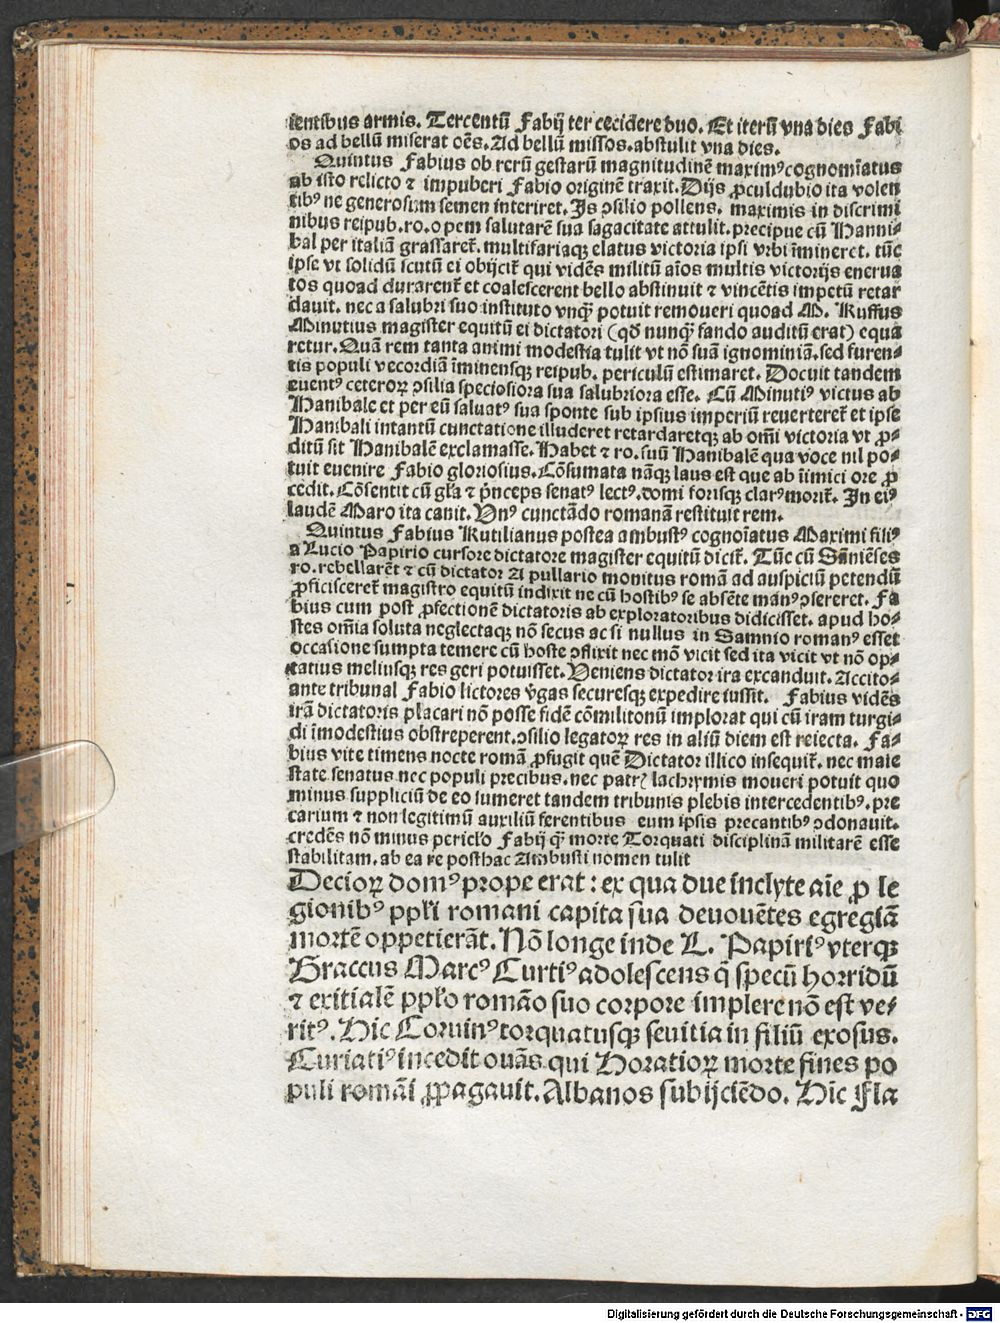 lentibus armis. Tercentū Fabij ter cecidere duo. Et iterū vna dies Fabi
os ad bellū miserat oēs. Ad bellū missos. abstulit vna dies.
Quintus Fabius ob rerū gestarū magnitudinē maximꝰ cognoīatus
ab isto relicto ⁊ impuberi Fabio originē traxit. Dijs ꝓculdubio ita volen
tibꝰ ne generosum semen interiret. Is ɔsilio pollens. maximis in discrimi
nibus reipub. ro. opem salutarē sua sagacitate attulit. precipue cū Hanni-
bal per italiā grassaret᷑. multifariaqꝫ elatus victoria ipsi vrbi īmineret. tūc
ipse vt solidū scutū ei obijcit᷑ qui vidēs militū aīos multis victorijs enerua
tos quoad durarent᷑ et coalescerent bello abstinuit ⁊ vincētis impetū retar
dauit. nec a salubri suo instituto vnqͣ potuit remoueri quoad M. Ruffus
Minutius magister equitū ei dictatori (qđ nunqͣ fando auditū erat) equa
retur. Quā rem tanta animi modestia tulit vt nō suā ignominiā. sed furen-
tis populi vecordiā īminensqꝫ reipub. periculū estimaret. Docuit tandem
euentꝰ ceteroꝝ ɔsilia speciosiora sua salubriora esse. Cū Minutiꝰ victus ab
Hanibale et per eū saluatꝰ sua sponte sub ipsius imperiū reuerteret᷑ et ipse
Hanibali intantū cunctatione illuderet retardaretqꝫ ab omī victoria vt ꝓ-
ditū sit Hanibalē exclamasse. Habet ⁊ ro. suū Hanibalē qua voce nil po-
tuit euenire Fabio gloriosius. Cōsumata nāqꝫ laus est que ab īimici ore ꝓ
cedit. Cōsentit cū gl̄a ⁊ p̄nceps senatꝰ lectꝰ. domi forisqꝫ clarꝰ morit᷑. In eiꝰ
laudē Maro ita canit. Vnꝰ cunctādo romanā restituit rem.
Quintus Fabius Rutilianus postea ambustꝰ cognoīatus Maximi filiꝰ
a Lucio Papirio cursore dictatore magister equitū dicit᷑. Tūc cū Sāniēses
ro. rebellarēt ⁊ cū dictator A pullario monitus romā ad auspiciū petendū
ꝓficisceret᷑ magistro equitū indixit ne cū hostibꝰ se absēte manꝰ ɔsereret. Fa
bius cum post ꝓfectionē dictatoris ab exploratoribus didicisset. apud ho-
stes om̄ia soluta neglectaqꝫ nō secus ac si nullus in Samnio romanꝰ esset
occasione sumpta temere cū hoste ɔflixit nec mō vicit sed ita vicit vt nō op-
tatius meliusqꝫ res geri potuisset. Veniens dictator ira excanduit. Accito-
ante tribunal Fabio lictores v̄gas securesqꝫ expedire iussit. Fabius vidēs
irā dictatoris placari nō posse fidē cōmilitonū implorat qui cū iram turgi-
di īmodestius obstreperent. ɔsilio legatoꝝ res in aliū diem est reiecta. Fa-
bius vite timens nocte romā ꝓfugit quē Dictator illico insequit᷑. nec maie
state senatus. nec populi precibus. nec patrꝭ lachrymis moueri potuit quo
minus suppliciū de eo sumeret tandem tribunis plebis intercedentibꝰ. pre
carium ⁊ non legitimū auxiliū ferentibus eum ipsis precantibꝰ ɔdonauit.
credēs nō minus pericl'o Fabij qͣ morte Torquati disciplinā militarē esse
stabilitam. ab ea re posthac Ambusti nomen tulit
Decioꝝ domꝰ prope erat : ex qua due inclyte aīe ꝓ le
gionibꝰ ppl'i romani capita sua deuouētes egregiā
mortē oppetierāt. Nō longe inde L. Papiriꝰ vterqꝫ
Braccus Marcꝰ Curtiꝰ adolescens q̄ specū horridū
⁊ exitialē ppl'o romāo suo corpore implere nō est ve-
ritꝰ. Hic Coruinꝰ torquatusqꝫ seuitia in filiū exosus.
Curiatiꝰ incedit ouās qui Horatioꝝ morte fines po
puli romāi ꝓpagauit. Albanos subijciēdo. Hic Fla
Digitalisierung gefördert durch die Deutsche Forschungsgemeinschaft - DFG